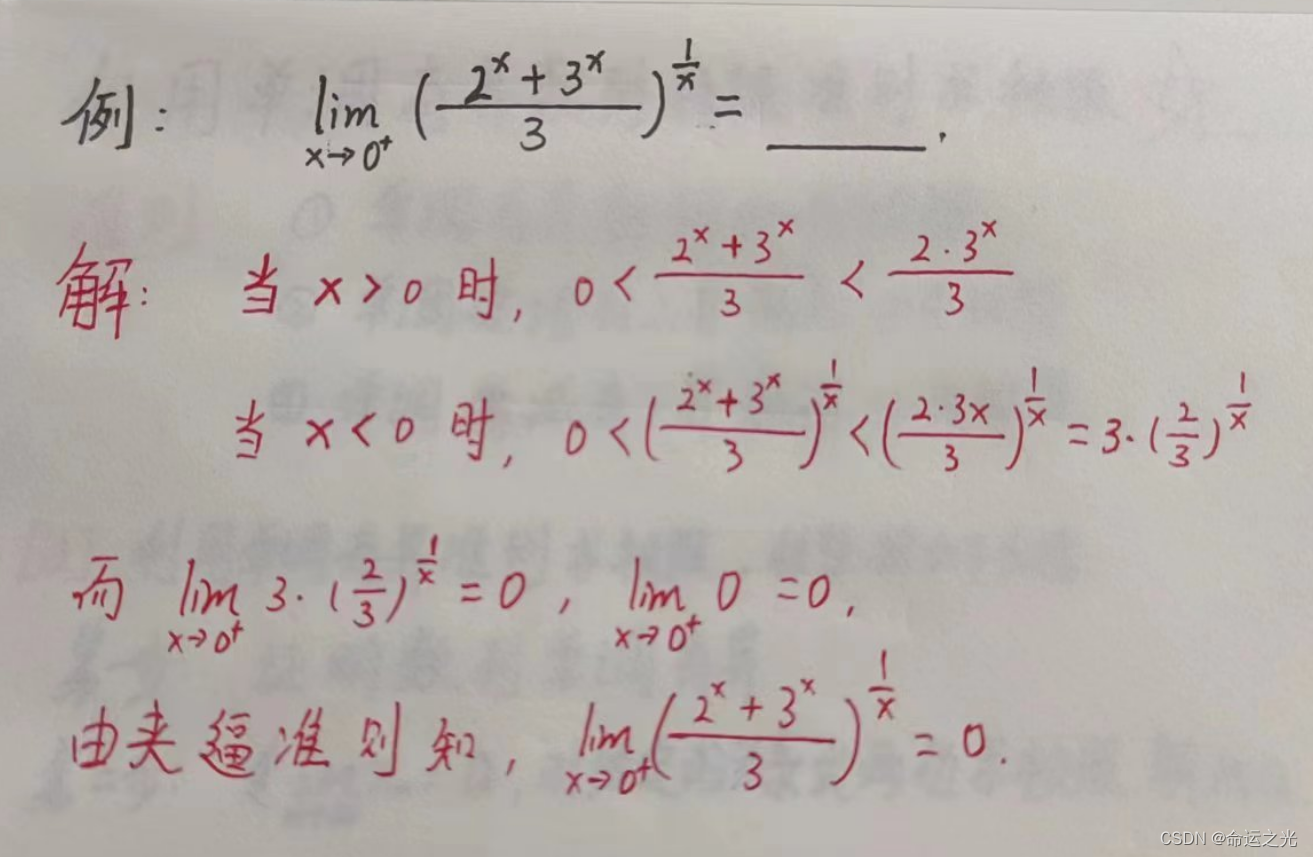 例: lim x→0⁺ (2ˣ + 3ˣ / 3)^(1/x) = ______ .
解: 当 x > 0 时, 0 < (2ˣ + 3ˣ)/3 < (2·3ˣ)/3
当 x < 0 时, 0 < ((2ˣ + 3ˣ)/3)^(1/x) < ((2·3x)/3)^(1/x) = 3·(2/3)^(1/x)
而 lim x→0⁺ 3·(2/3)^(1/x) = 0 , lim x→0⁺ 0 = 0 ,
由夹逼准则知, lim x→0⁺ ((2ˣ + 3ˣ)/3)^(1/x) = 0.
CSDN @命运之光